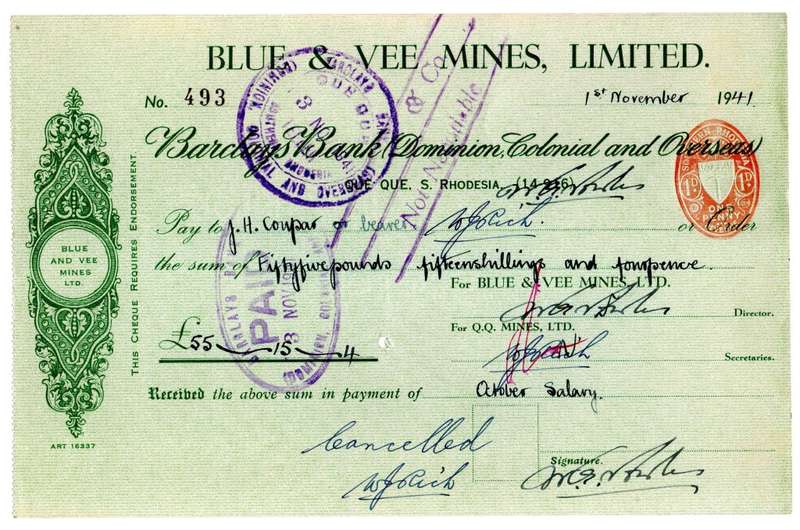 BLUE & VEE MINES, LIMITED.
No. 493
1st November 1941.
& Co
Not Negotiable
Barclays Bank (Dominion, Colonial and Overseas)
QUE QUE, S. RHODESIA, (14,916)
Pay to J. H. Coupar or bearer W J Rich. or Order
the sum of Fiftyfivepounds fifteenshillings and fourpence.
For BLUE & VEE MINES, LTD.
Director.
For Q.Q. MINES, LTD.
£55 - 15 - 4
W J Rich
Secretaries.
Received the above sum in payment of October Salary.
Cancelled
W J Rich
Signature.
BLUE
AND VEE
MINES
LTD.
ART 16337
THIS CHEQUE REQUIRES ENDORSEMENT.
BARCLAYS BANK
QUE QUE
3 NOV
SOUTHERN RHODESIA
BARCLAYS
PAID
3 NOV
(DOMINION, COLONIAL
SOUTHERN RHODESIA
1D 1D
ONE
PENNY